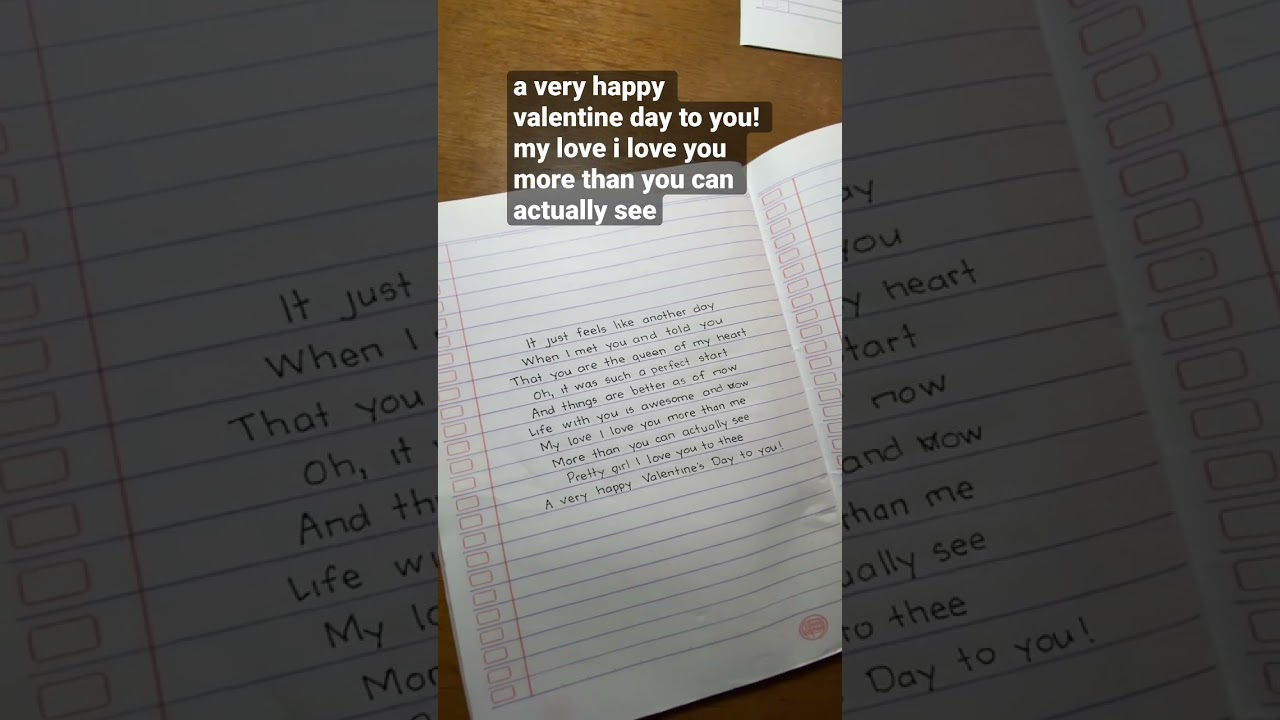 a very happy
valentine day to you!
my love i love you
more than you can
actually see
It just feels like another day
When I met you and told you
That you are the queen of my heart
Oh, it was such a perfect start
And things are better as of now
Life with you is awesome and wow
My love I love you more than me
More than you can actually see
Pretty girl I love you to thee
A very happy Valentine's Day to you!